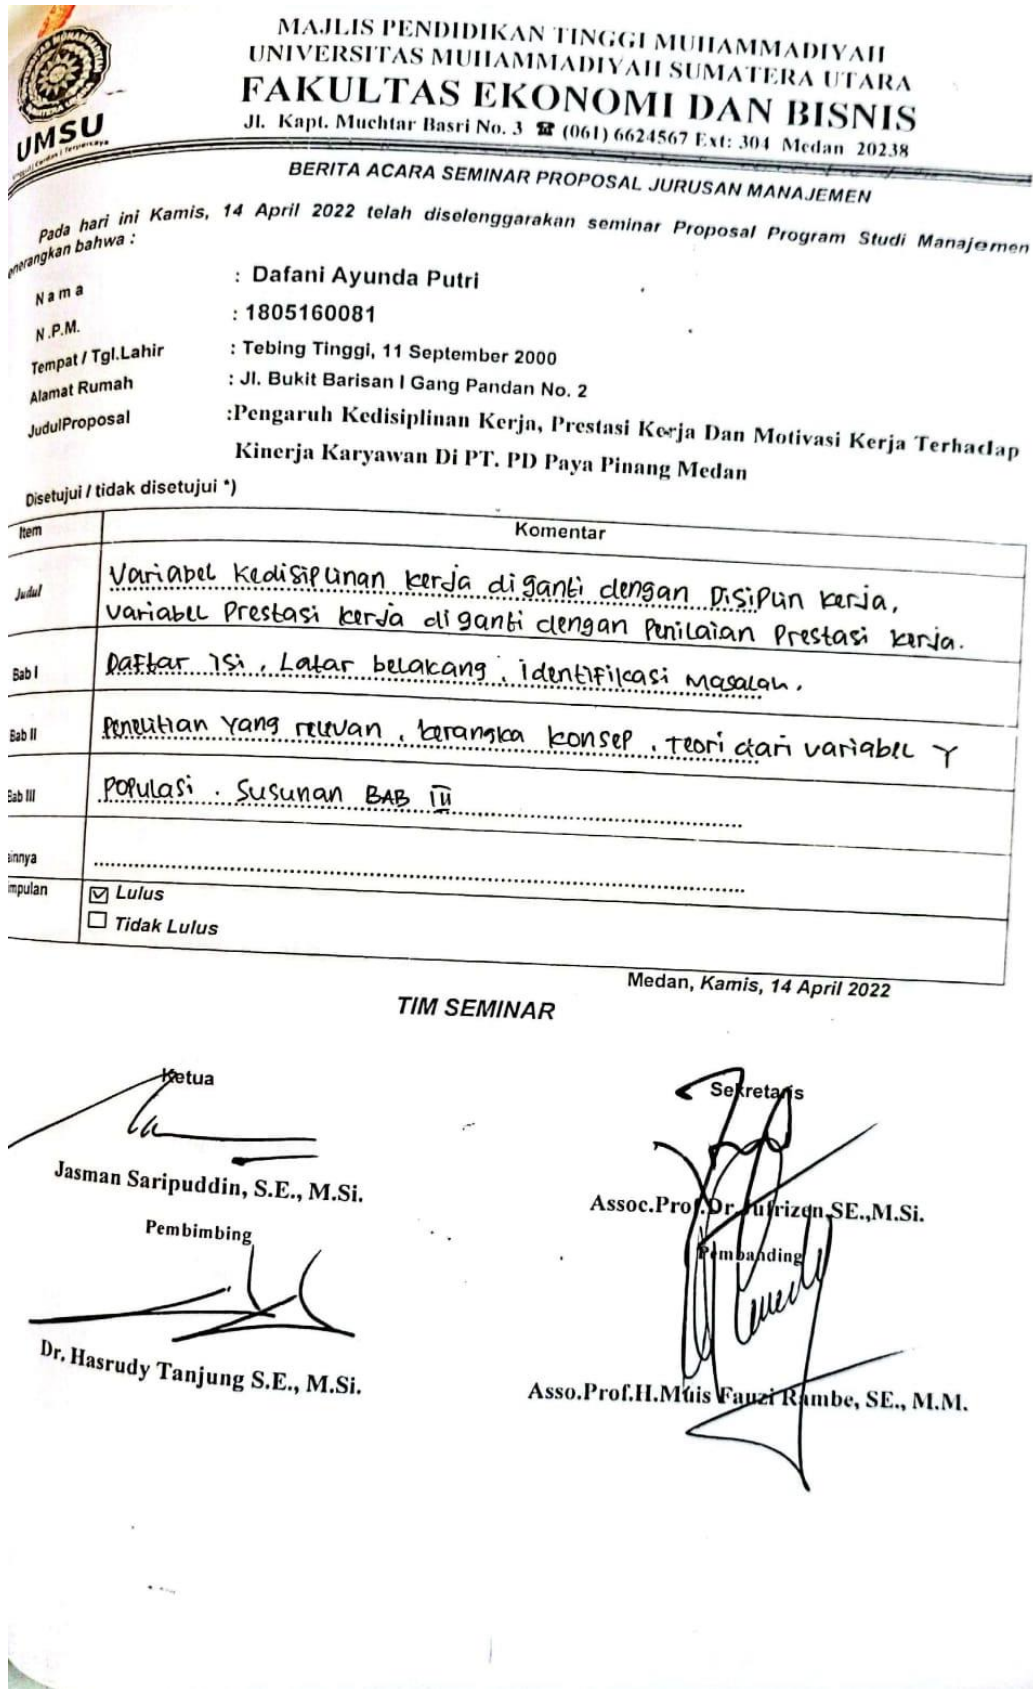 MAJLIS PENDIDIKAN TINGGI MUHAMMADIYAH
UNIVERSITAS MUHAMMADIYAH SUMATERA UTARA
FAKULTAS EKONOMI DAN BISNIS
Jl. Kapt. Muchtar Basri No. 3 ☎ (061) 6624567 Ext: 304 Medan 20238
UMSU
BERITA ACARA SEMINAR PROPOSAL JURUSAN MANAJEMEN
Pada hari ini Kamis, 14 April 2022 telah diselenggarakan seminar Proposal Program Studi Manajemen
enerangkan bahwa :
Nama : Dafani Ayunda Putri
N.P.M. : 1805160081
Tempat / Tgl.Lahir : Tebing Tinggi, 11 September 2000
Alamat Rumah : Jl. Bukit Barisan I Gang Pandan No. 2
JudulProposal :Pengaruh Kedisiplinan Kerja, Prestasi Kerja Dan Motivasi Kerja Terhadap
Kinerja Karyawan Di PT. PD Paya Pinang Medan
Disetujui / tidak disetujui *)
Item Komentar
Judul Variabel Kedisiplinan kerja diganti dengan Disiplin kerja,
variabel Prestasi kerja diganti dengan Penilaian Prestasi kerja.
Bab I Daftar isi, Latar belakang, identifikasi masalah.
Bab II Penelitian yang relevan, kerangka konsep, teori dari variabel Y
Bab III Populasi. Susunan BAB III
ainnya
mpulan ☑ Lulus
☐ Tidak Lulus
Medan, Kamis, 14 April 2022
TIM SEMINAR
Ketua Sekretaris
Jasman Saripuddin, S.E., M.Si. Assoc.Prof.Dr.Jufrizen,SE.,M.Si.
Pembimbing Pembanding
Dr. Hasrudy Tanjung S.E., M.Si. Asso.Prof.H.Muis Fauzi Rambe, SE., M.M.